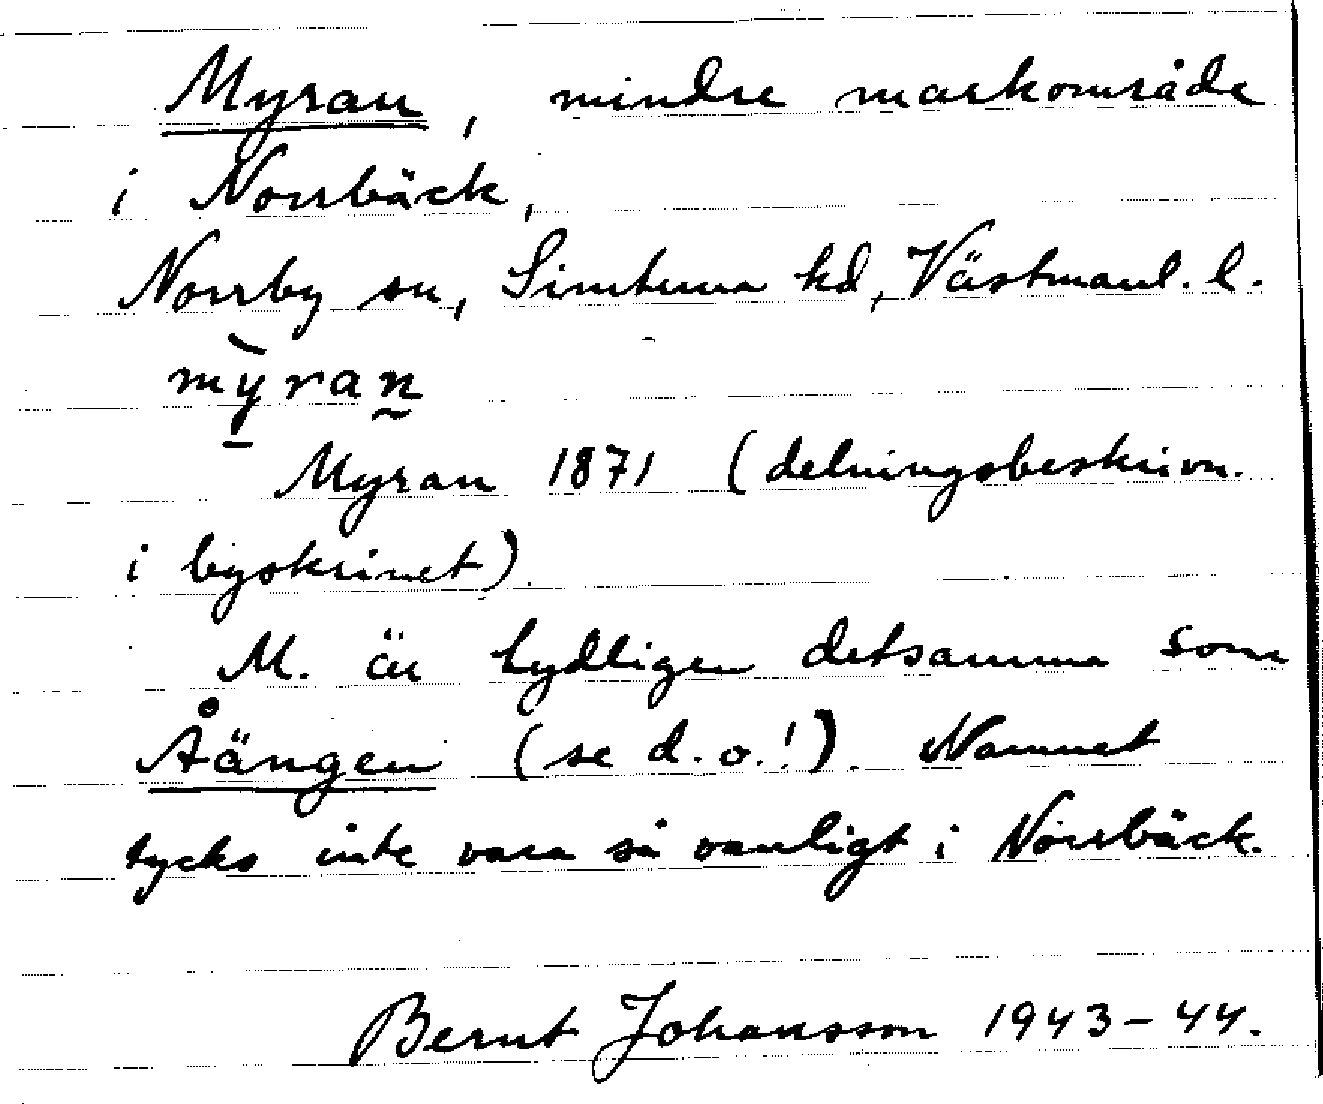 Myran, mindre markområde
i Norrbäck,
Norrby sn, Simtuna hd, Västmanl. l.
mỳran̰
Myran 1871 (delningsbeskrivn.
i byskrinet).
M. är tydligen detsamma som
Åängen (se d. o.!). Namnet
tycks inte vara så vanligt i Norrbäck.
Bernt Johansson 1943-44.